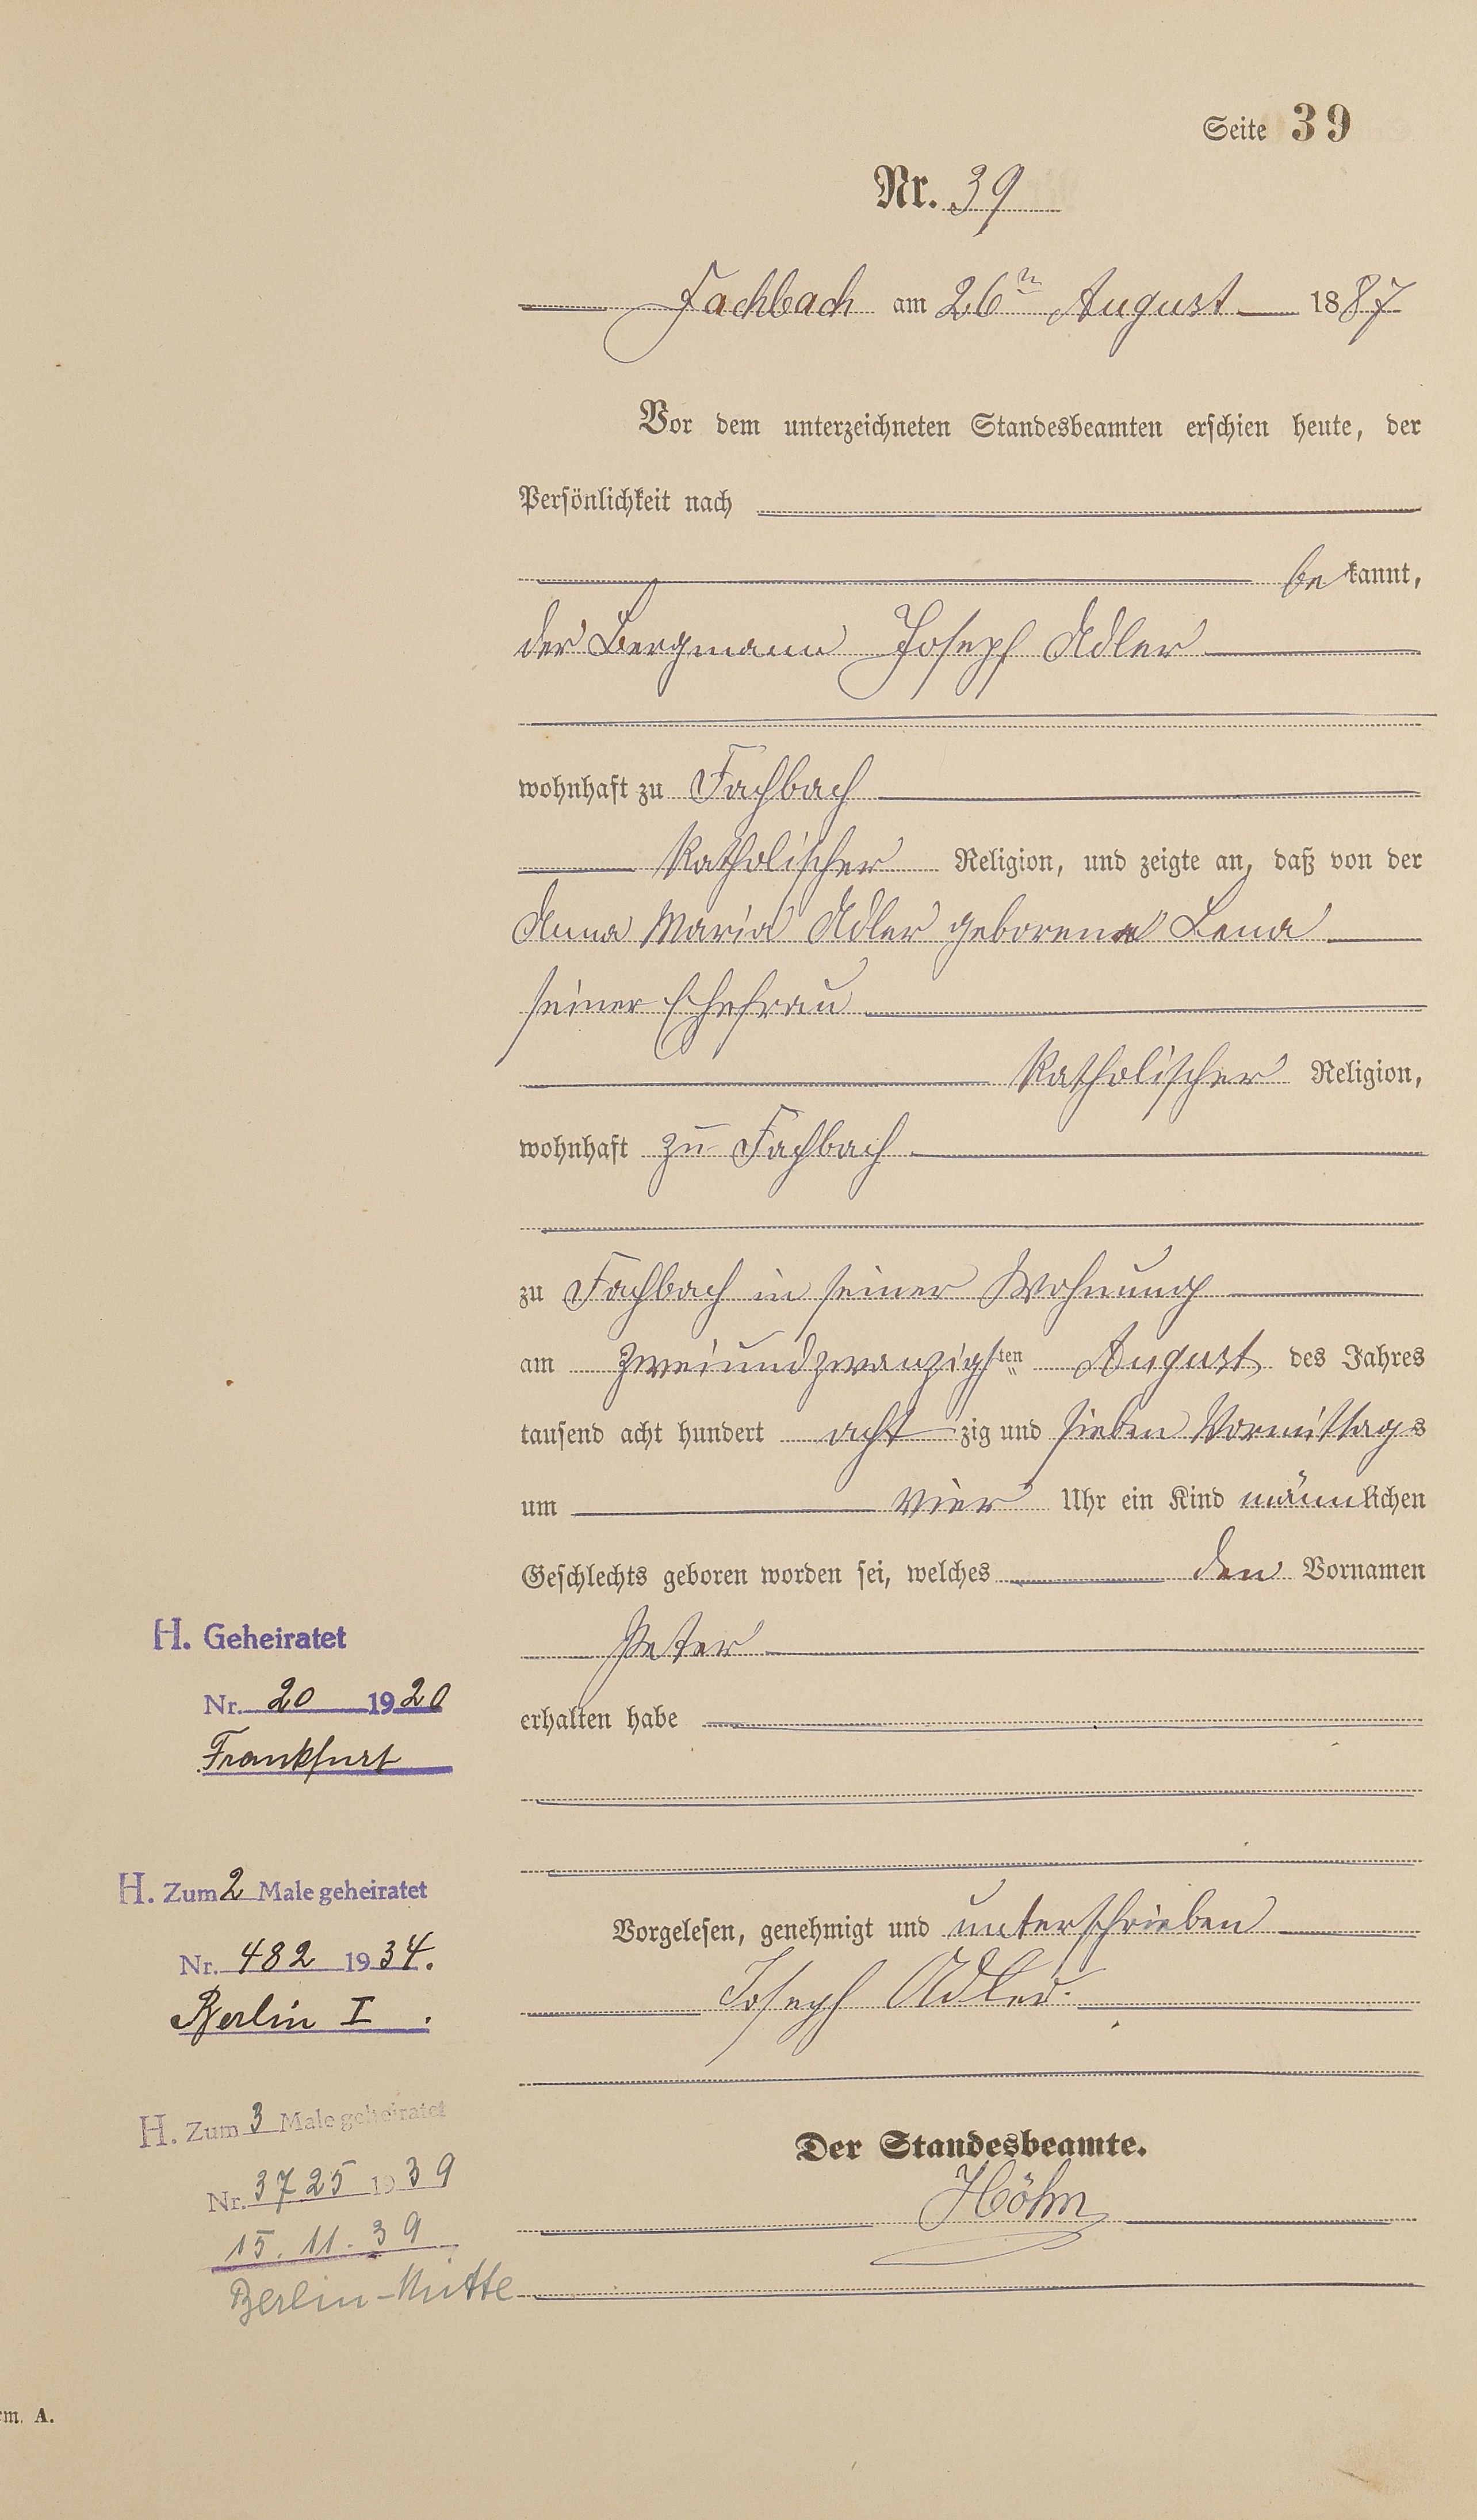 Seite 39
Nr. 39
Fachbach am 26ten August 1887
Vor dem unterzeichneten Standesbeamten erschien heute, der
Persönlichkeit nach
bekannt,
der Bergmann Joseph Adler
wohnhaft zu Fachbach
Katholischer Religion, und zeigte an, daß von der
Anna Maria Adler geborene Lena
seiner Ehefrau
Katholischer Religion,
wohnhaft zu Fachbach
zu Fachbach in seiner Wohnung
am zweiundzwanzigsten August des Jahres
tausend acht hundert achtzig und sieben Vormittags
um vier Uhr ein Kind männlichen
Geschlechts geboren worden sei, welches den Vornamen
Peter
erhalten habe
Vorgelesen, genehmigt und unterschrieben
Joseph Adler.
Der Standesbeamte.
Höhn
H. Geheiratet
Nr. 20 1920
Frankfurt
H. Zum 2 Male geheiratet
Nr. 482 1934.
Berlin I.
H. Zum 3 Male geheiratet
Nr. 3725 1939
15.11.39
Berlin-Mitte
rm. A.